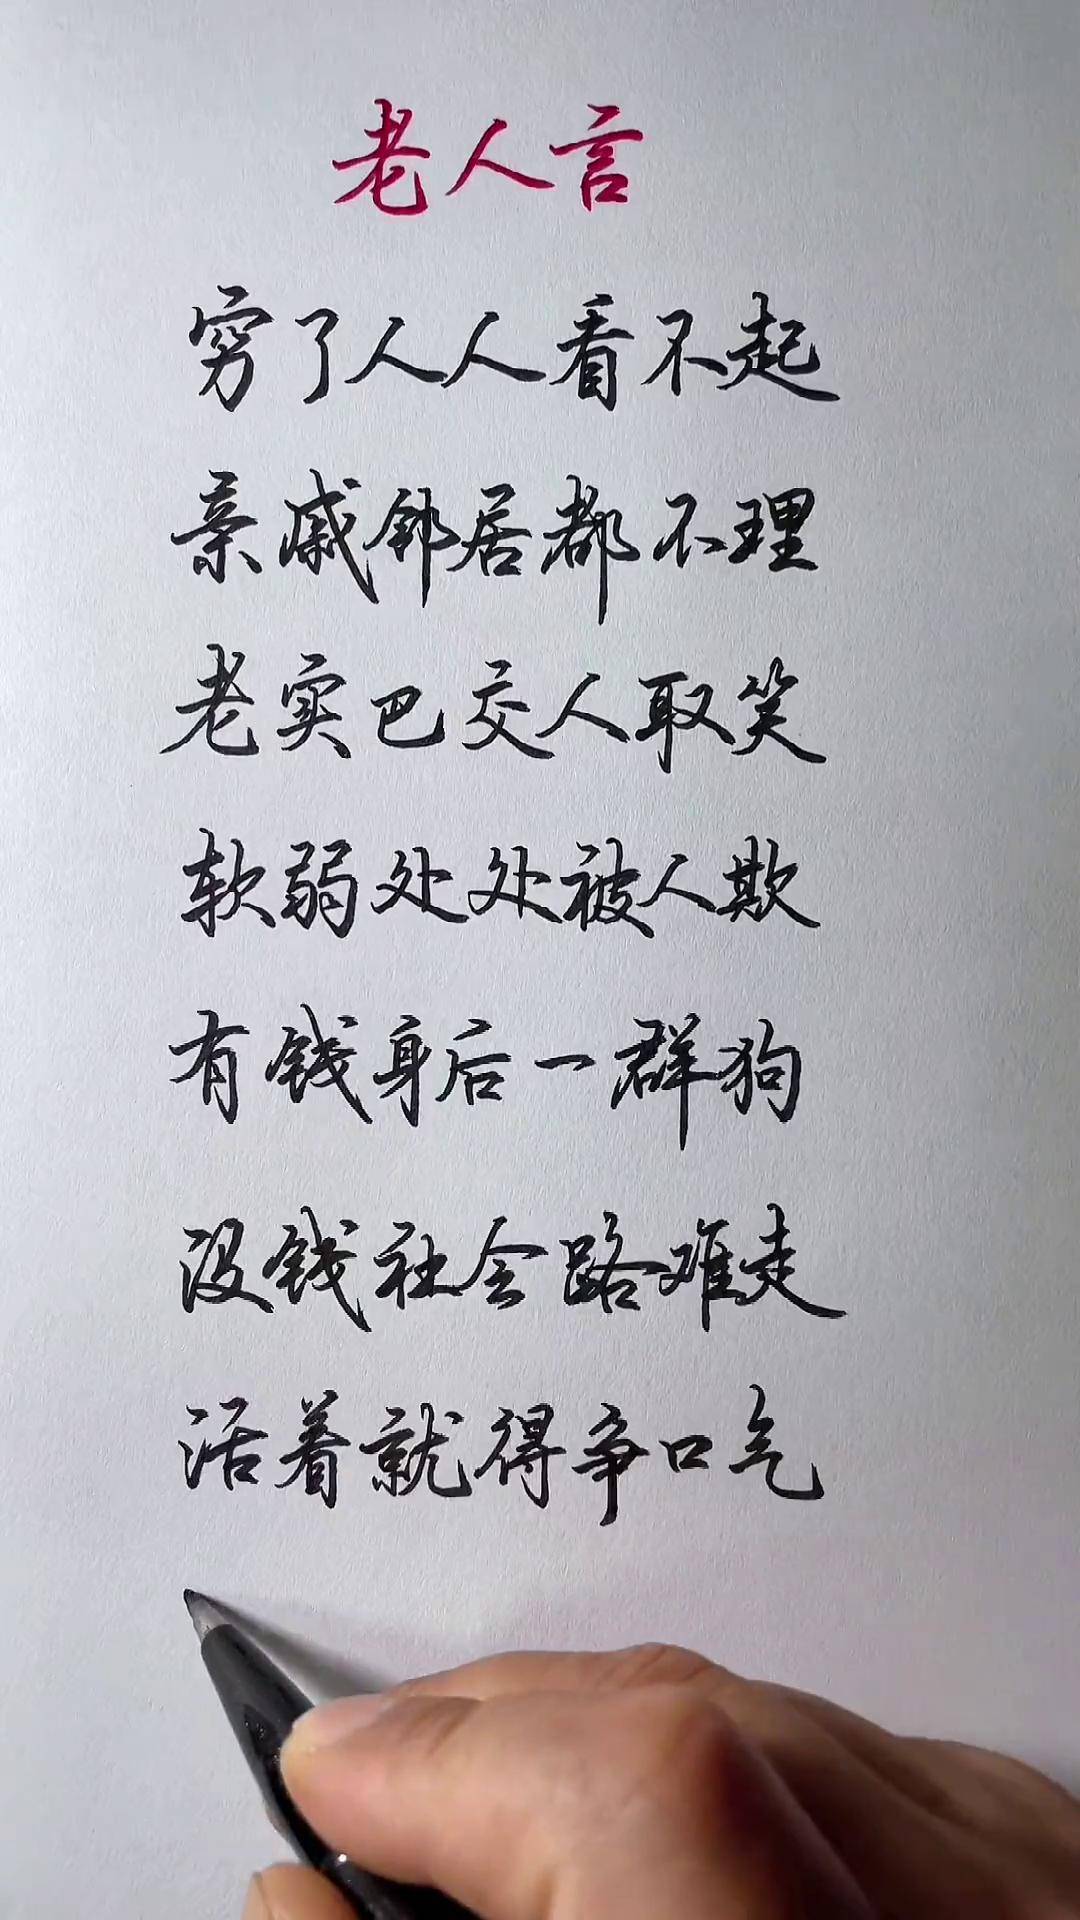 老人言
穷了人人看不起
亲戚邻居都不理
老实巴交人取笑
软弱处处被人欺
有钱身后一群狗
没钱社会路难走
活着就得争口气